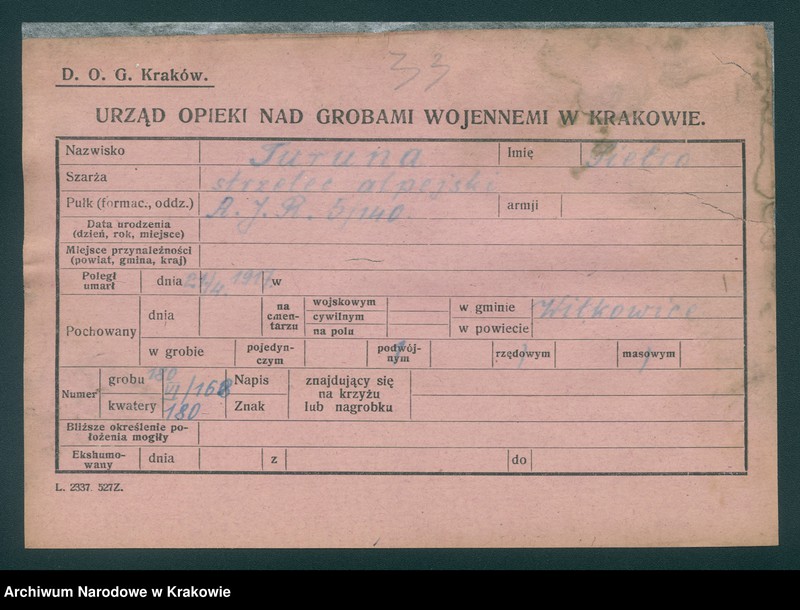 33
D. O. G. Kraków.
URZĄD OPIEKI NAD GROBAMI WOJENNEMI W KRAKOWIE.
Nazwisko Turuna Imię Pietro
Szarża strzelec alpejski
Pułk (formac., oddz.) A. J. R. 5/140 armji
Data urodzenia
(dzień, rok, miejsce)
Miejsce przynależności
(powiat, gmina, kraj)
Poległ
umarł dnia 21/4. 1917 w
Pochowany dnia na cmen-tarzu wojskowym w gminie Witkowice
cywilnym
na polu w powiecie
w grobie pojedyn-czym podwój-nym rzędowym masowym
Numer grobu 180 VI/168 Napis znajdujący się
na krzyżu
kwatery 180 Znak lub nagrobku
Bliższe określenie po-
łożenia mogiły
Ekshumo-
wany dnia z do
L. 2337. 527Z.
Archiwum Narodowe w Krakowie